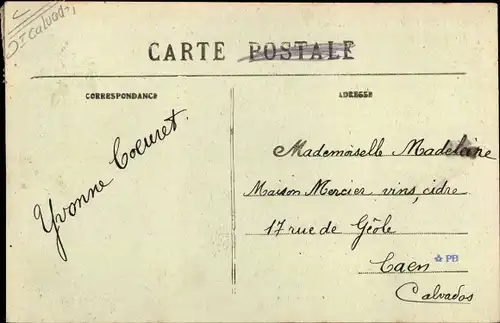 Calvados
CARTE POSTALE
CORRESPONDANCE
ADRESSE
Yvonne Coeuret.
Mademoiselle Madeleine
Maison Mercier vins, cidre
17 rue de Géole
Caen
PB
Calvados